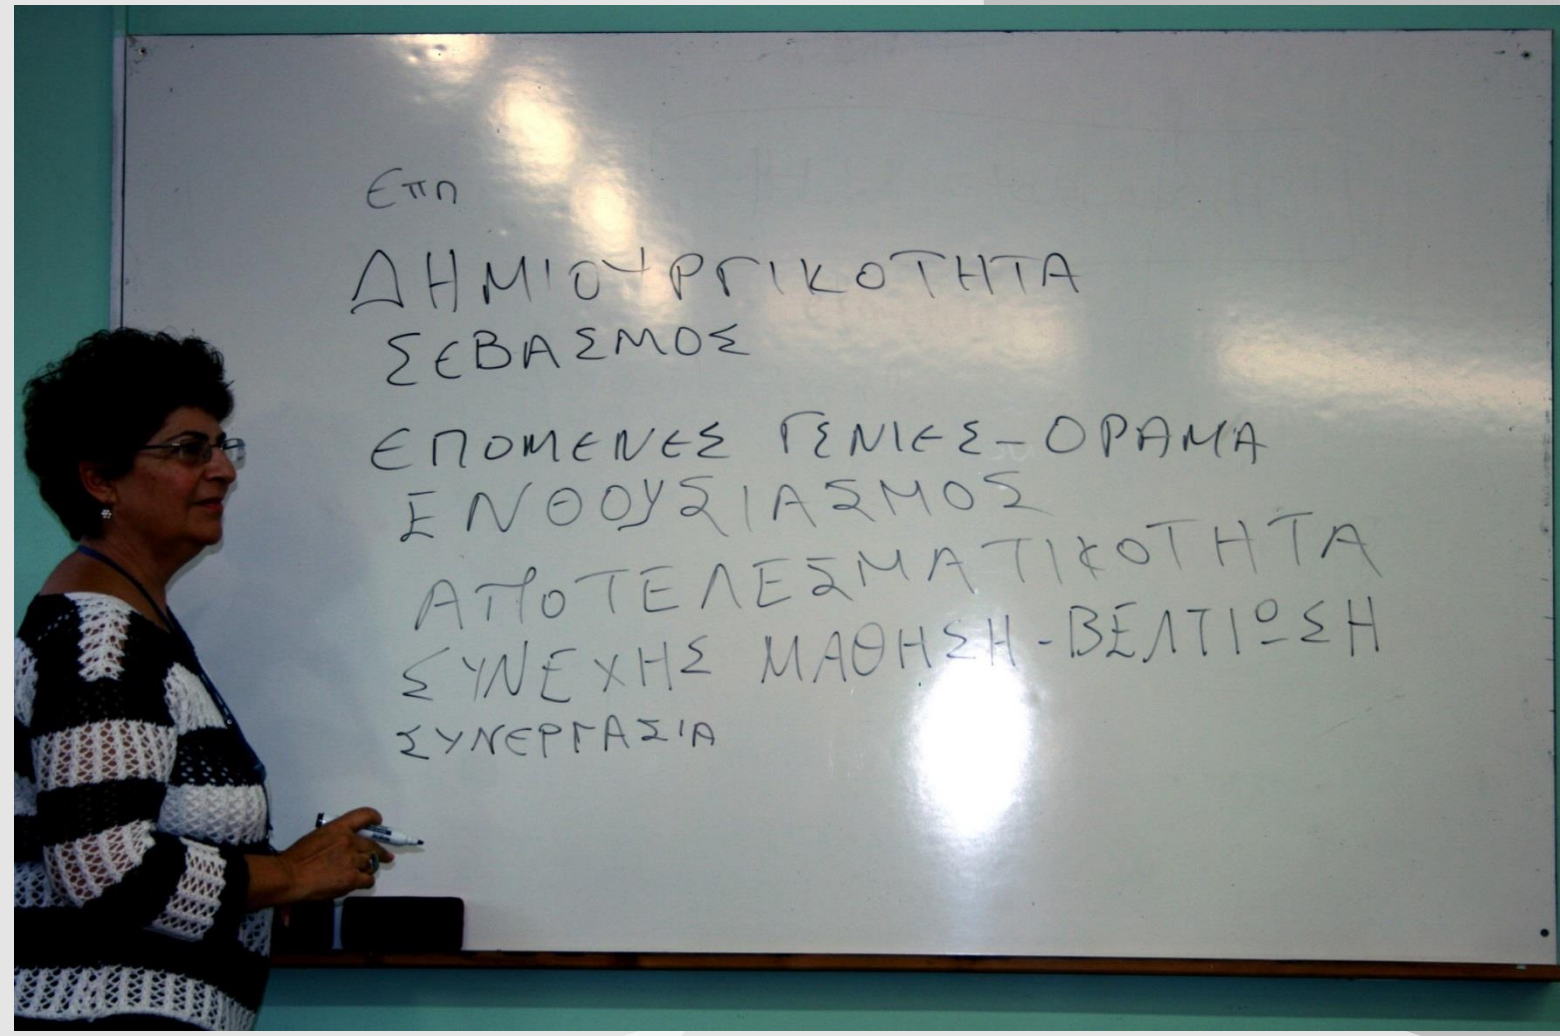 Επη
ΔΗΜΙΟΥΡΓΙΚΟΤΗΤΑ
ΣΕΒΑΣΜΟΣ
ΕΠΟΜΕΝΕΣ ΓΕΝΙΕΣ-ΟΡΑΜΑ
ΕΝΘΟΥΣΙΑΣΜΟΣ
ΑΠΟΤΕΛΕΣΜΑΤΙΚΟΤΗΤΑ
ΣΥΝΕΧΗΣ ΜΑΘΗΣΗ-ΒΕΛΤΙΩΣΗ
ΣΥΝΕΡΓΑΣΙΑ